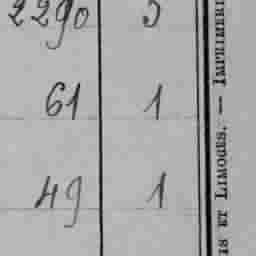 2290 5
61 1
49 1
IS ET LIMOGES. — IMPRIMERI